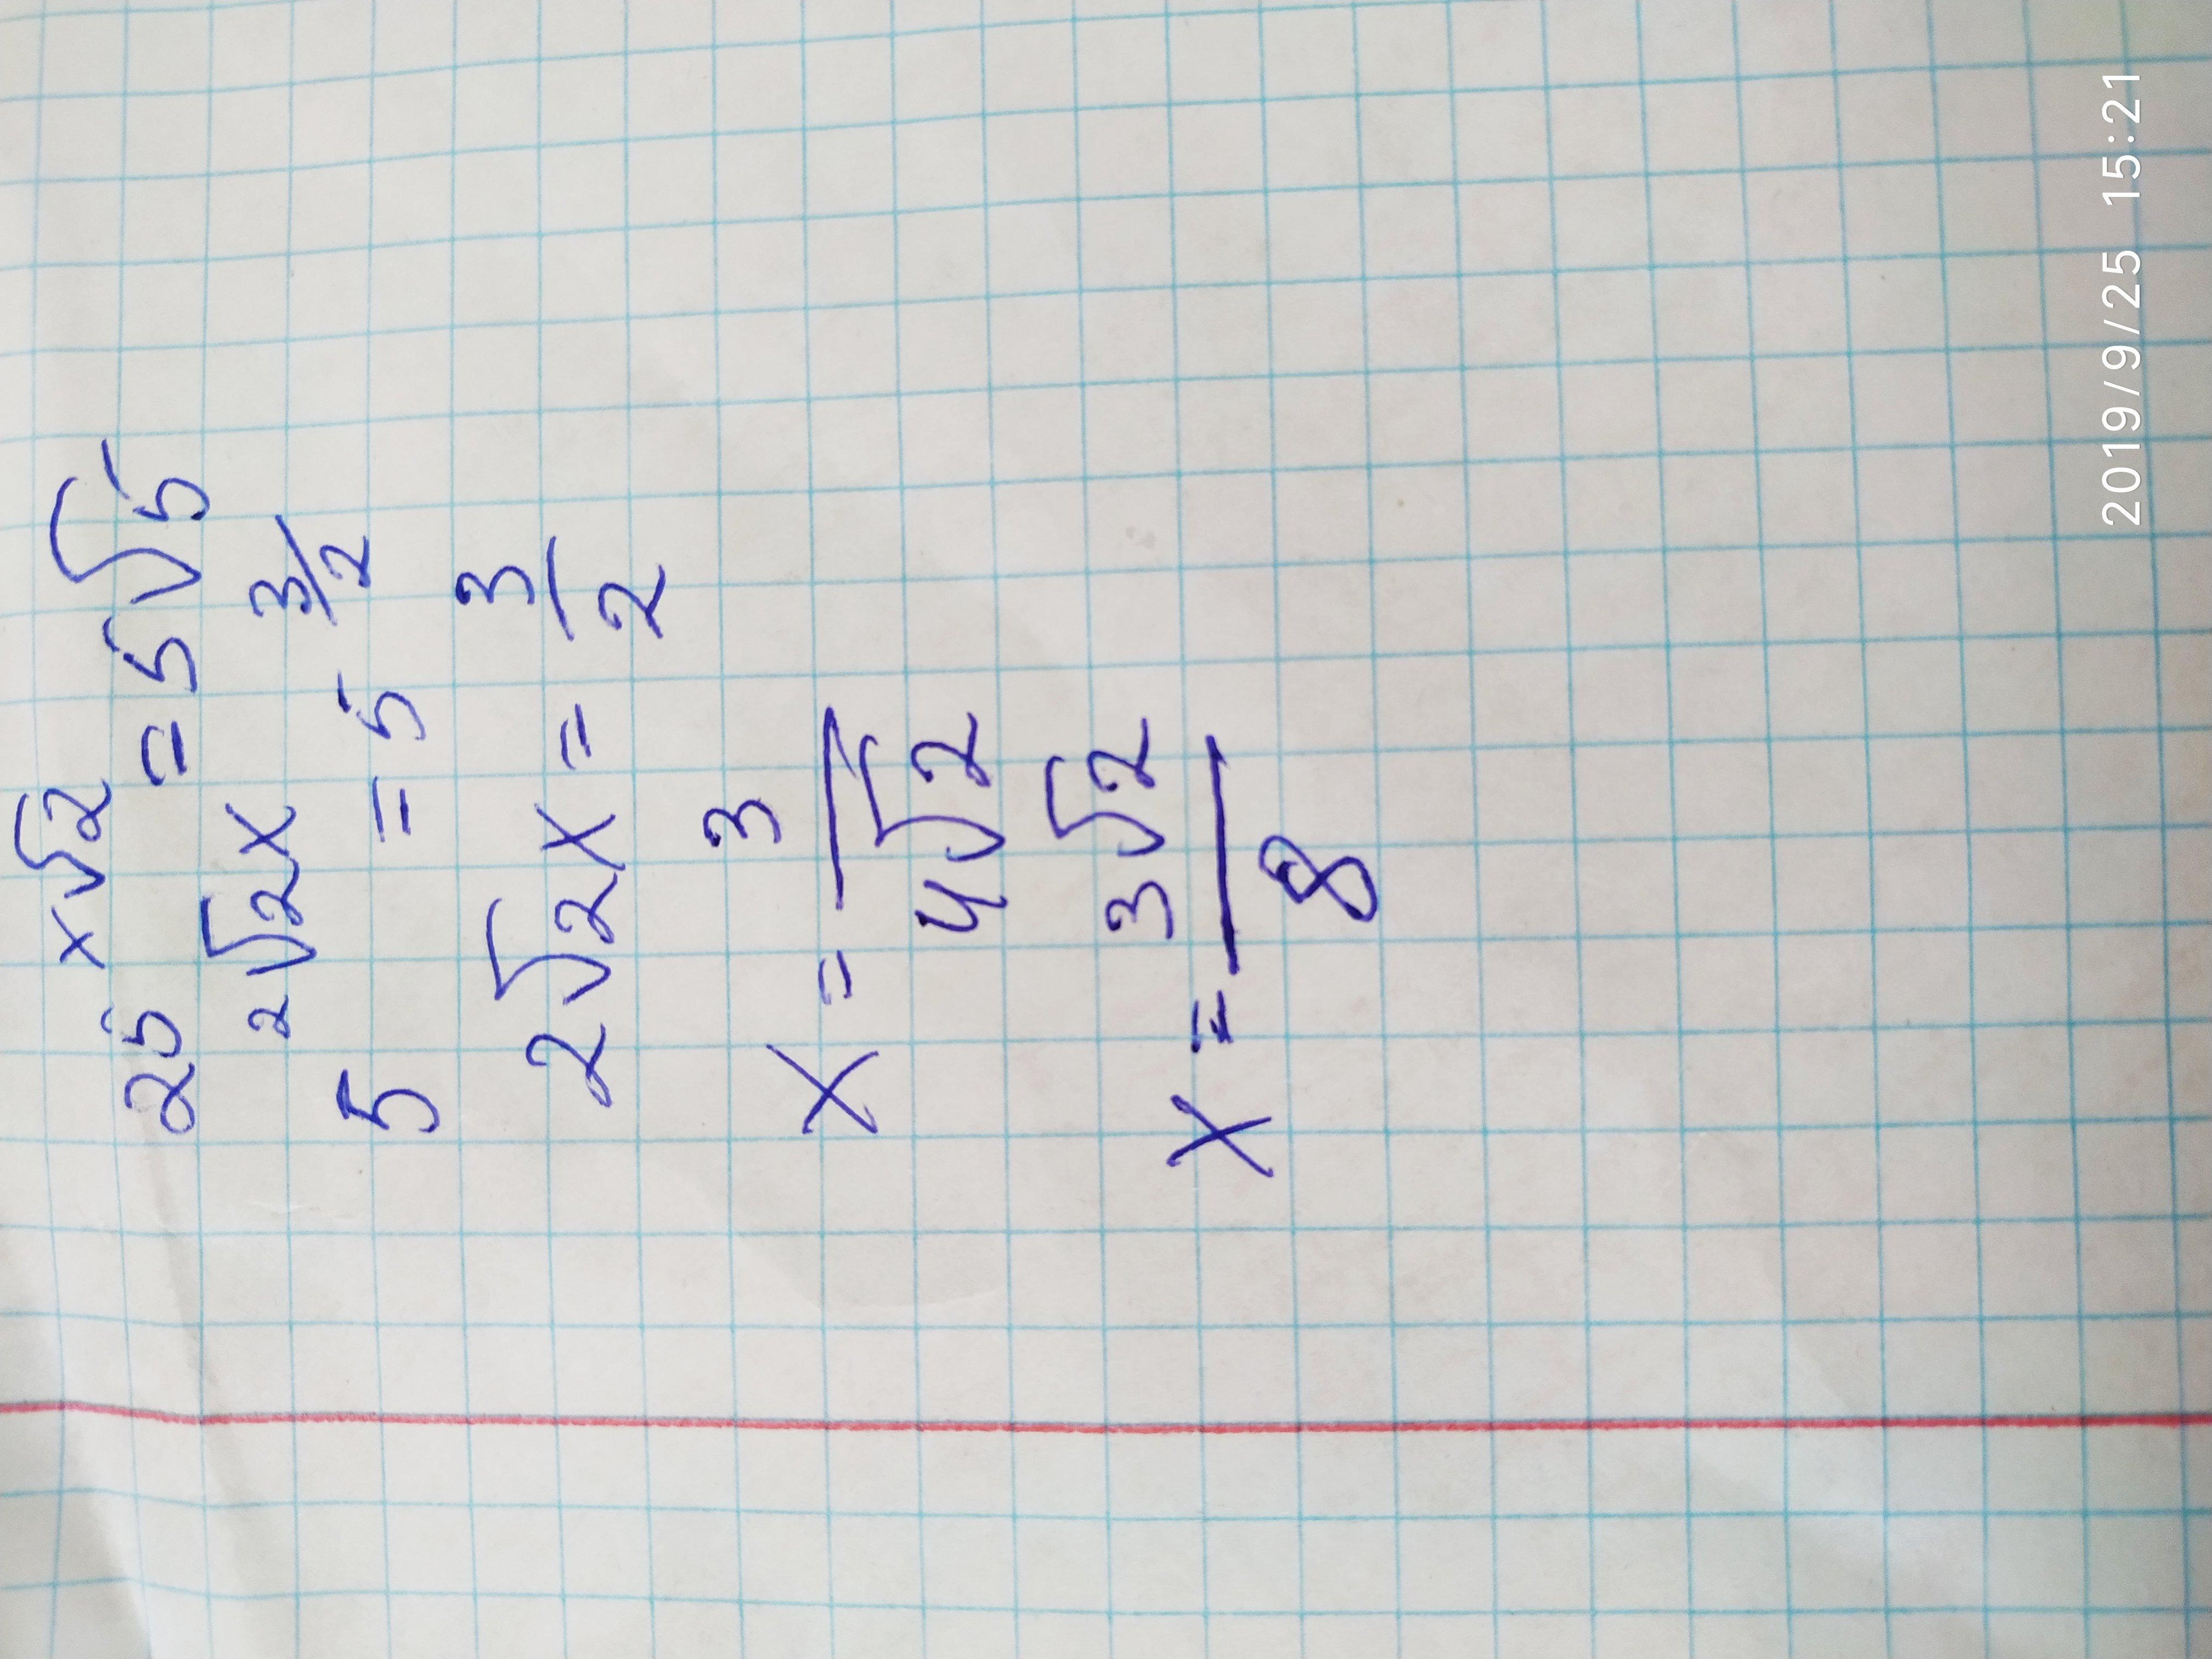 25^(x√2) = 5√5
5^(2√2x) = 5^(3/2)
2√2x = 3/2
x = 3/(4√2)
x = 3√2/8
2019/9/25 15:21